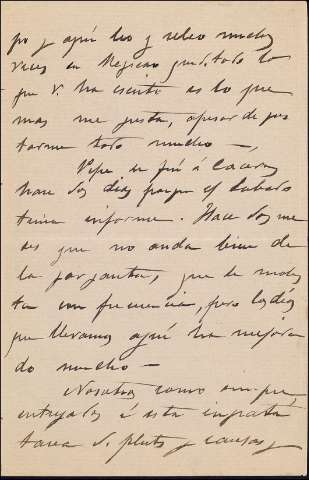 po y aquí leo y releo muchas
veces su Regreso pues todo lo
que V. ha escrito es lo que
mas me gusta, apesar de gus
tarme todo mucho —
Pepe se fué á Caceres
hace dos dias porque el Sabado
tenia informe. Hace dos me
ses que no anda bien de
la garganta, que le moles
ta con frecuencia, pero los dias
que llevamos aquí ha mejora
do mucho —
Nosotros como siempre
entregados á esta ingrata
tarea de pleitos y causas y